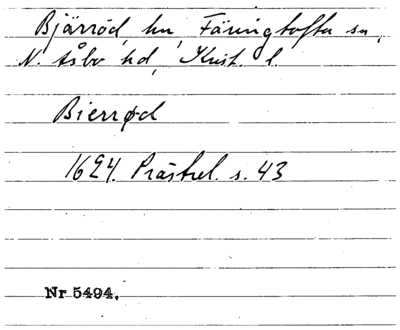 Bjärröd, hn, Färingtofta sn,
N. Åsbo hd, Krist. l.
Bierrød
1624. Prästrel. s. 43
Nr 5494.